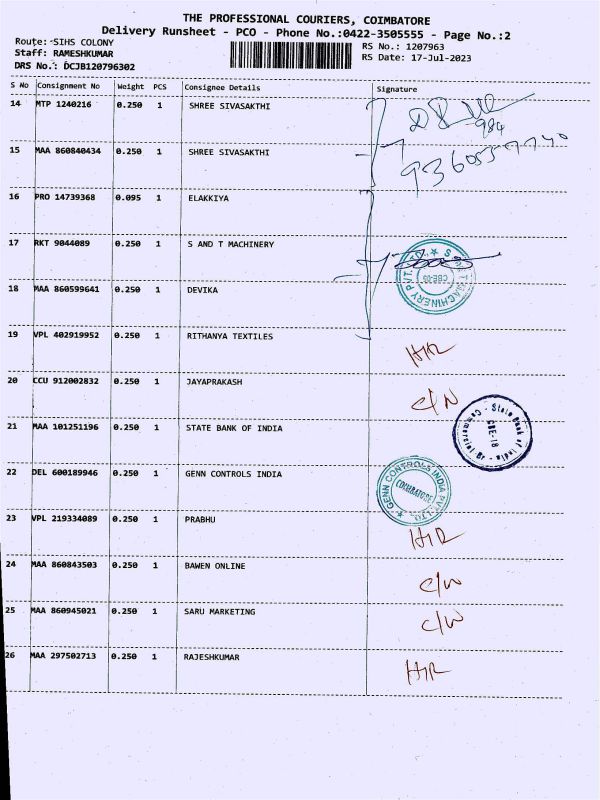 THE PROFESSIONAL COURIERS, COIMBATORE
Delivery Runsheet - PCO - Phone No.:0422-3505555 - Page No.:2
Route:-SIHS COLONY
Staff: RAMESHKUMAR
DRS No.: DCJB120796302
RS No.: 1207963
RS Date: 17-Jul-2023
S No Consignment No Weight PCS Consignee Details Signature
14 MTP 1240216 0.250 1 SHREE SIVASAKTHI
984
15 MAA 860840434 0.250 1 SHREE SIVASAKTHI
16 PRO 14739368 0.095 1 ELAKKIYA
17 RKT 9044089 0.250 1 S AND T MACHINERY
CBE-05
18 MAA 860599641 0.250 1 DEVIKA
19 VPL 402919952 0.250 1 RITHANYA TEXTILES
20 CCU 912002832 0.250 1 JAYAPRAKASH
21 MAA 101251196 0.250 1 STATE BANK OF INDIA
State Bank of India
CBE-18
22 DEL 600189946 0.250 1 GENN CONTROLS INDIA
GENN CONTROLS INDIA PVT. LTD.
COIMBATORE
23 VPL 219334089 0.250 1 PRABHU
24 MAA 860843503 0.250 1 BAWEN ONLINE
25 MAA 860945021 0.250 1 SARU MARKETING
26 MAA 297502713 0.250 1 RAJESHKUMAR